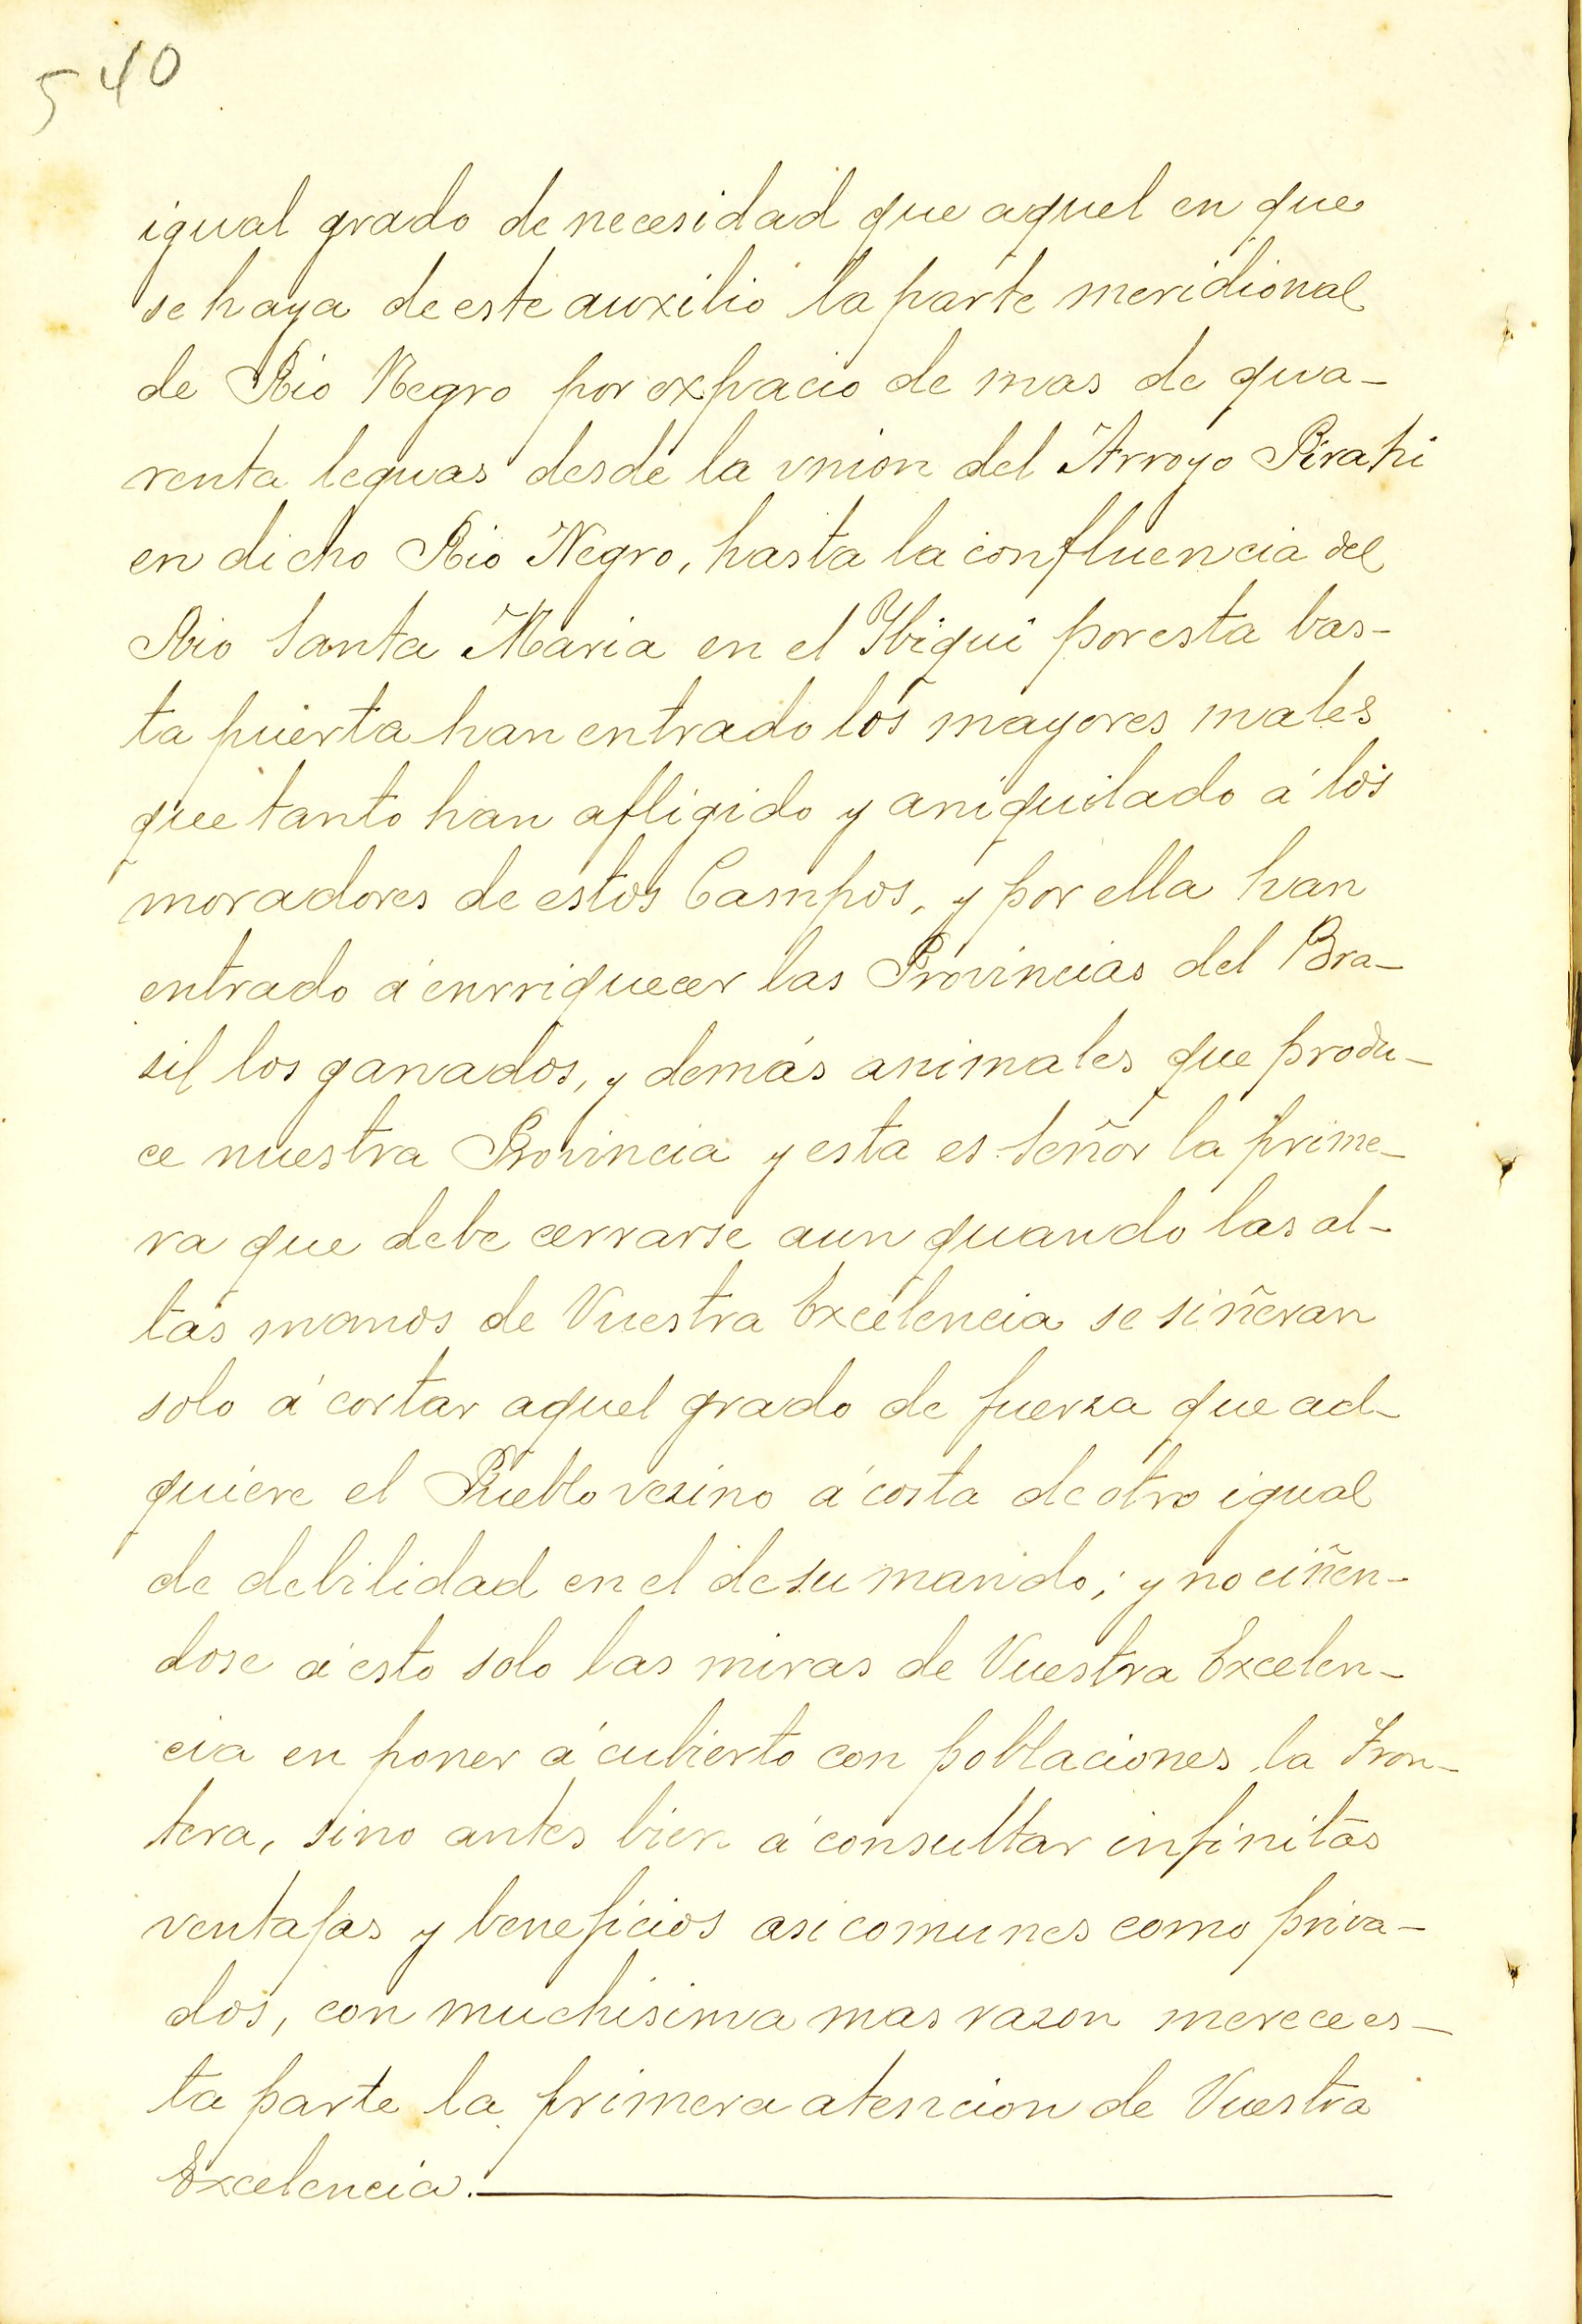 540
igual grado de necesidad que aquel en que
se haya de este auxilio la parte meridional
de Rio Negro por expacio de mas de qua-
renta leguas desde la vnion del Arroyo Pirahi
en dicho Rio Negro, hasta la confluencia del
Rio Santa Maria en el Ybiqui por esta bas-
ta puerta han entrado los mayores males
que tanto han afligido y aniquilado á los
moradores de estos Campos, y por ella han
entrado á enrriquecer las Provincias del Bra-
sil los ganados, y demás animales que produ-
ce nuestra Provincia y esta es Señor la prime-
ra que debe cerrarse aun quando las al-
tas manos de Vuestra Excelencia se siñeran
solo á cortar aquel grado de fuerza que ad-
quiere el Pueblo vezino á costa de otro igual
de debilidad en el de su mando; y no ciñen-
dose á esto solo las miras de Vuestra Excelen-
cia en poner á cubierto con poblaciones la Fron-
tera, sino antes bien á consultar infinitas
ventajas y beneficios asi comunes como priva-
dos, con muchisima mas razon merece es-
ta parte la primera atencion de Vuestra
Excelencia.